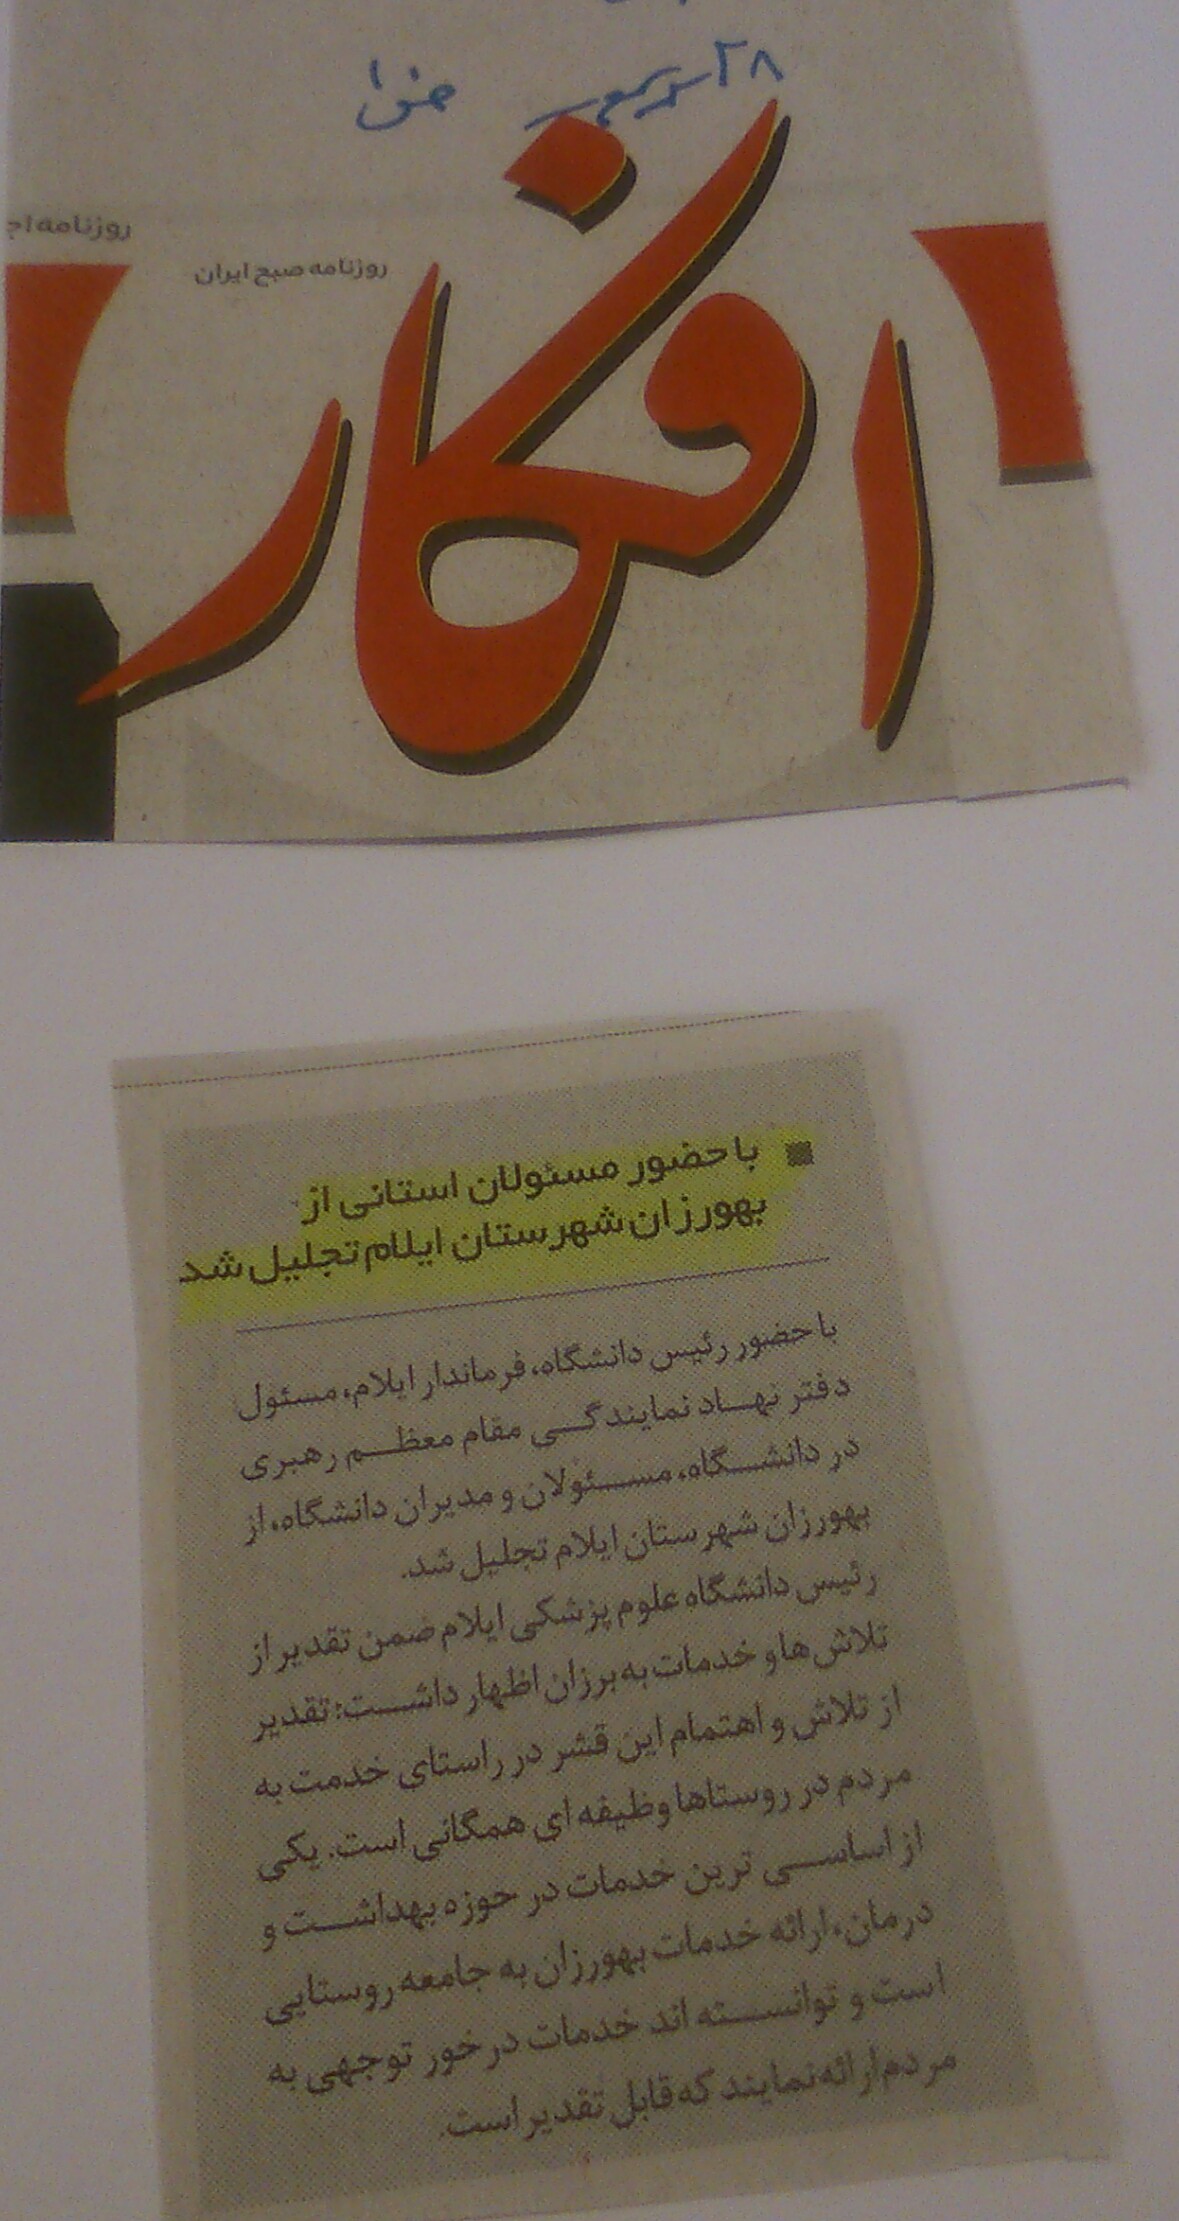 ۲۸
روزنامه اج
روزنامه صبح ایران
افکار
با حضور مسئولان استانی از
بهورزان شهرستان ایلام تجلیل شد
با حضور رئیس دانشگاه، فرماندار ایلام، مسئول
دفتر نهاد نمایندگی مقام معظم رهبری
در دانشگاه، مسئولان و مدیران دانشگاه، از
بهورزان شهرستان ایلام تجلیل شد.
رئیس دانشگاه علوم پزشکی ایلام ضمن تقدیر از
تلاش ها و خدمات به برزان اظهار داشت: تقدیر
از تلاش و اهتمام این قشر در راستای خدمت به
مردم در روستاها وظیفه ای همگانی است. یکی
از اساسی ترین خدمات در حوزه بهداشت و
درمان، ارائه خدمات بهورزان به جامعه روستایی
است و توانسته اند خدمات در خور توجهی به
مردم ارائه نمایند که قابل تقدیر است.